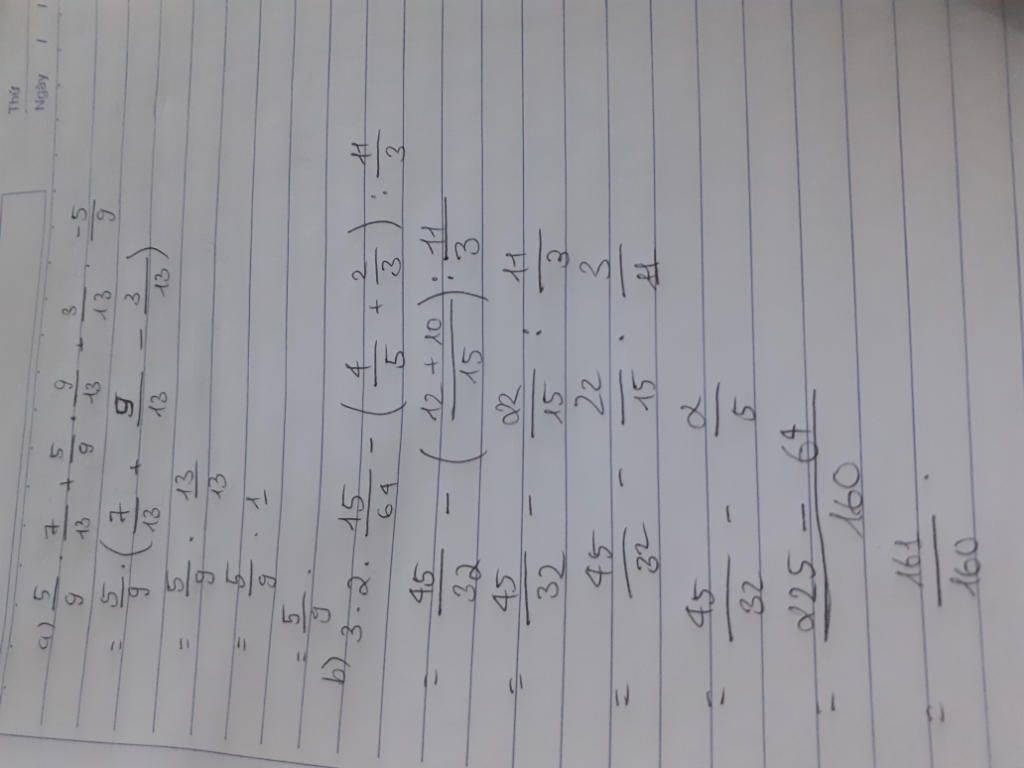 Thứ
Ngày / /
a) 5/9 . 7/13 + 5/9 . 9/13 + 3/13 . -5/9
= 5/9 . (7/13 + 9/13 - 3/13)
= 5/9 . 13/13
= 5/9 . 1
= 5/9 .
b) 3 . 2 . 15/64 - (4/5 + 2/3) : 11/3
= 45/32 - (12 + 10/15) : 11/3
= 45/32 - 22/15 : 11/3
= 45/32 - 22/15 . 3/11
= 45/32 - 2/5
= 225 - 64/160
= 161/160 .